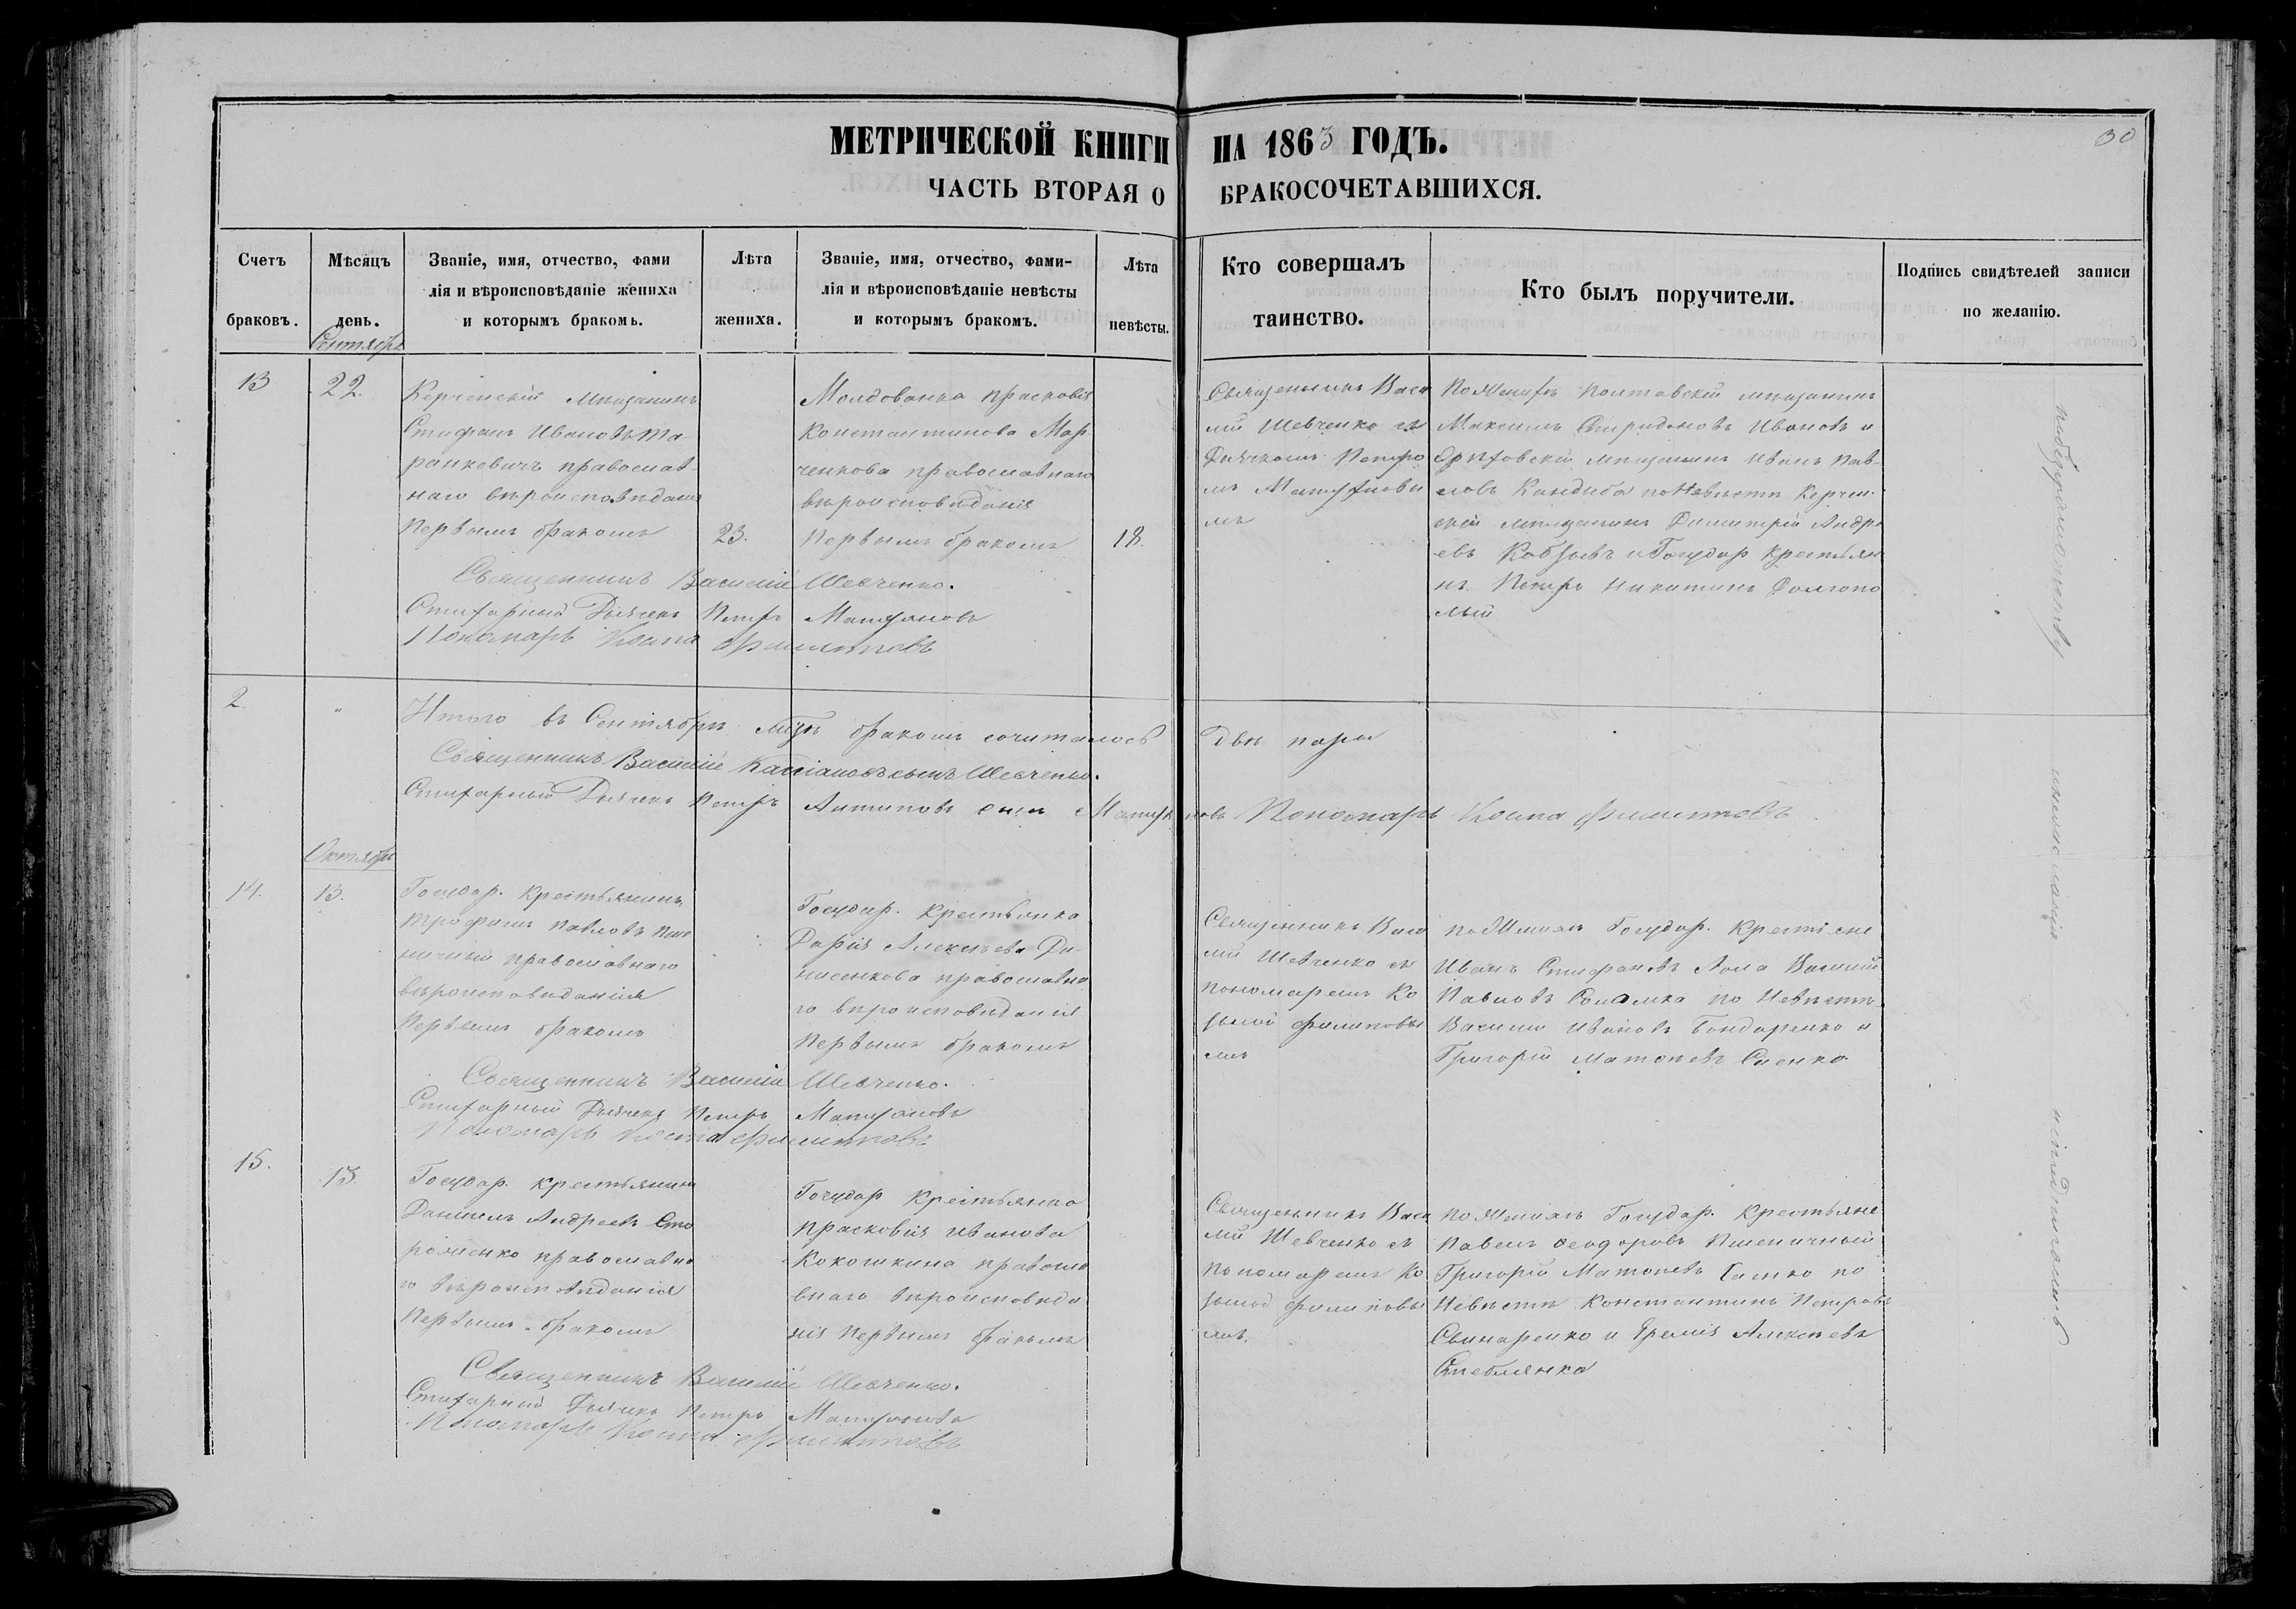 МЕТРИЧЕСКОЙ КНИГИ НА 1863 ГОДЪ.
30
ЧАСТЬ ВТОРАЯ О БРАКОСОЧЕТАВШИХСЯ.
Счетъ
браковъ.
Мѣсяцъ
день.
Званіе, имя, отчество, фами
лія и вѣроисповѣданіе жениха
и которымъ бракомъ.
Лѣта
жениха.
Званіе, имя, отчество, фами-
лія и вѣроисповѣданіе невѣсты
и которымъ бракомъ.
Лѣта
невѣсты.
Кто совершалъ
таинство.
Кто былъ поручители.
Подпись свидѣтелей записи
по желанію.
Сентябрь
13
22.
Керченскій мѣщанинъ
Стефанъ Ивановъ Та-
ранкевичъ православ-
наго вѣроисповѣданія
Первымъ бракомъ
23.
Молдованка Прасковія
Константинова Мар
ченкова православнаго
вѣроисповѣданія
Первымъ бракомъ
18.
Священникъ Васи
лій Шевченко съ
Дьячкомъ Петро
мъ
мъ
По Женихѣ Полтавскій мѣщанинъ
Максимъ Спиридоновъ Ивановъ и
мѣщанинъ Иванъ Пав-
ловъ Кандиба по Невѣстѣ Керчен-
скій мѣщанинъ Димитрій Андре
евъ и Государ крестьян
нъ Петръ Никитинъ Долгопо
лый
Священникъ Василій Шевченко.
Стихарный Дьячекъ Петръ
Пономарь Косма Филипповъ
2.
"
Итого въ Сентябрѣ мѣцѣ бракомъ сочиталось Двѣ пары
Священникъ Василій Кассіановъ сынъ Шевченко.
Стихарный Дьячекъ Петръ Антиповъ сынъ
Пономарь Косма Филипповъ
Октябрь
14.
13.
Государ. крестьянинъ
Трофимъ Павловъ Пше
ничный православнаго
вѣроисповѣданія
Первымъ бракомъ
Государ. крестьянка
Дарія Алексѣева Де-
нисенкова православна
го вѣроисповѣданія
Первымъ бракомъ
Священникъ Васи
лій Шевченко съ
пономаремъ Ко
зьмой Филиповы
мъ
по Женихѣ Государ. Крестьяне
Иванъ Стефановъ Василій
Павловъ по Невѣстѣ
Василій Ивановъ Бондаренко и
Григорій Матвѣевъ
Священникъ Василій Шевченко.
Стихарный Дьячекъ Петръ
Пономарь Косма Филипповъ
15.
13
Государ. крестьянинъ
Даніилъ Андреевъ Сто
роженко православна
го вѣроисповѣданія
Первымъ бракомъ
Государ крестьянка
Прасковія Иванова
Кокошкина правосла
внаго вѣроисповѣда
нія Первымъ бракомъ
Священникъ Васи
лій Шевченко съ
пономаремъ Ко
зьмой Филиповы
мъ.
по Женихѣ Государ. Крестьяне
Павелъ Феодоровъ Пшеничный
Григорій Матвѣевъ по
Невѣстѣ Константинъ Петровъ
Свинаренко и Алексѣевъ
Стеблянка
Священникъ Василій Шевченко.
Стихарный Дьячекъ Петръ
Пономарь Косма Филипповъ